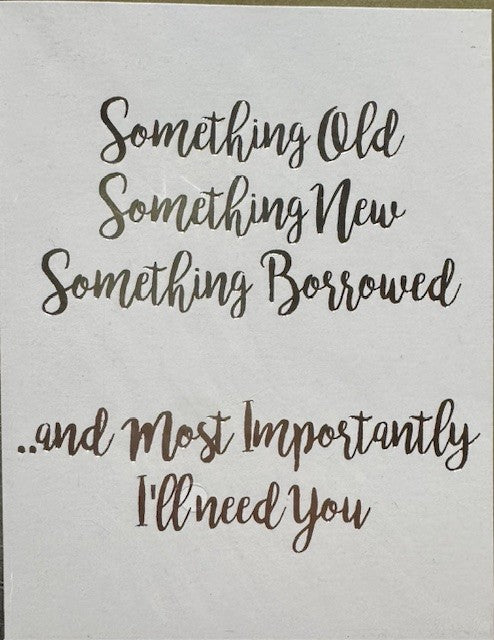 Something Old
Something New
Something Borrowed
..and Most Importantly
I'll need You